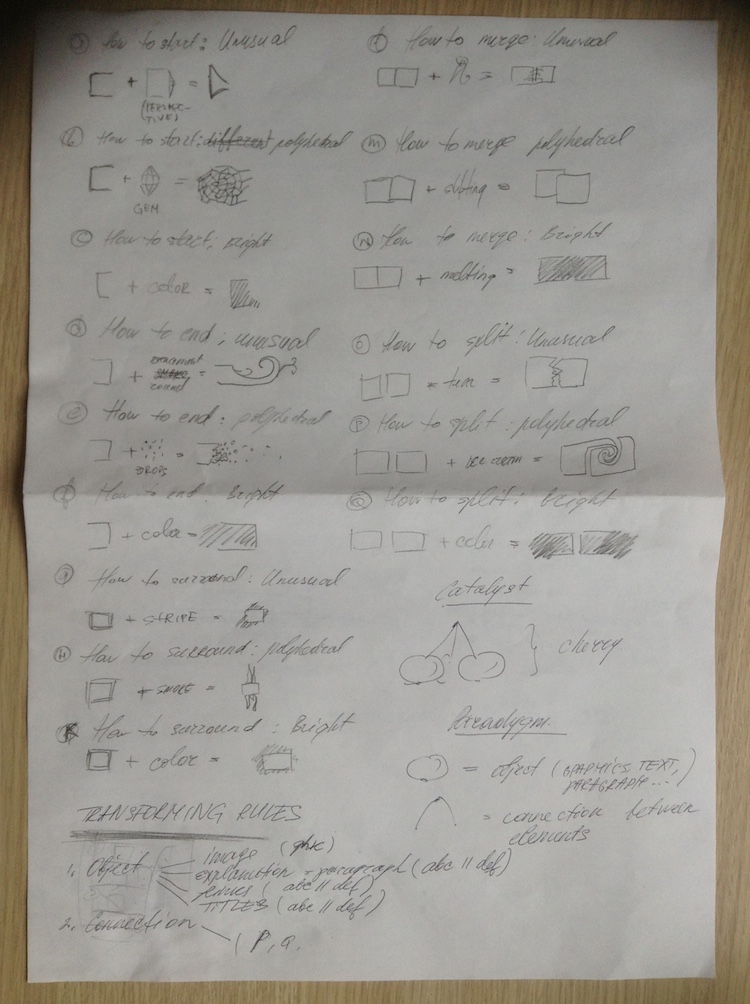 How to start: Unusual
+ =
(PERSPEC-
TIVE)
How to start: different polyhedral
+ =
GEM
C How to start; Bright
+ color =
d How to end; unusual
+ ornament =
round
e How to end: polyhedral
+ =
DROPS
f How to end: Bright
+ color =
g How to surround: Unusual
+ STRIPE =
H How to surround: polyhedral
+ SMOKE =
K How to surround: Bright
+ color =
TRANSFORMING RULES
1. Object
image
explanation = paragraph (abc || def)
(abc || def)
TITLES (abc || def)
2. Connection
(P, a,
How to merge: Unusual
+ =
m How to merge polyhedral
+ =
N How to merge: Bright
+ melting =
O How to split: Unusual
= =
P How to split: polyhedral
+ =
Q How to split: Bright
+ color =
Catalyst
} cherry
Paradygm.
= object (GRAPHICS, TEXT,
PARAGRAPH...)
= connection between
elements